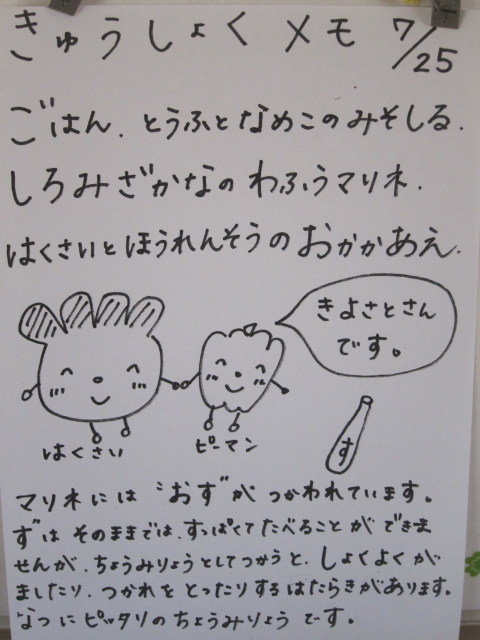 きゅうしょくメモ 7/25
ごはん．とうふとなめこのみそしる．
しろみざかなのわふうマリネ．
はくさいとほうれんそうのおかかあえ．
きよさとさん
です。
はくさい
ピーマン
す
マリネには “おす”が つかわれています。
す”は そのままでは、すっぱくてたべることができま
せんが、ちょうみりょうとしてつかうと、しょくよくが
ましたり、つかれをとったりするはたらきがあります。
なつにピッタリのちょうみりょうです。